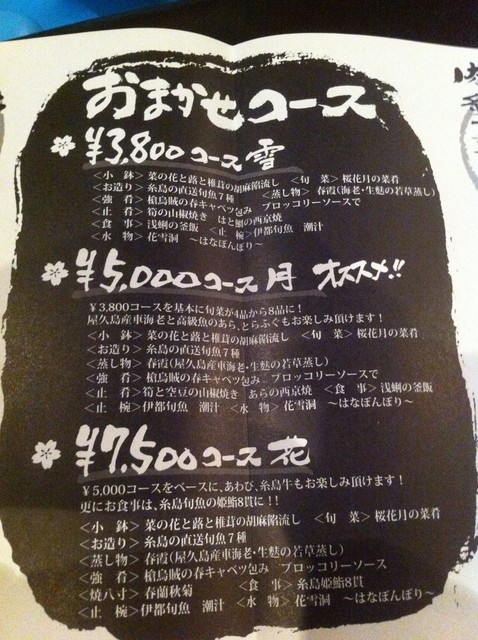 おまかせコース
¥3,800コース 雪
<小　鉢>菜の花と蕗と椎茸の胡麻餡流し　<旬　菜>桜花月の菜肴
<お造り>糸島の直送旬魚7種　<蒸し物>春霞(海老・生麩の若草蒸し)
<強　肴>槍烏賊の春キャベツ包み　ブロッコリーソースで
<止　肴>筍の山椒焼き　はと鯛の西京焼
<食　事>浅蜊の釜飯　<止　椀>伊都旬魚　潮汁
<水　物>花雪洞　〜はなぼんぼり〜
¥5,000コース 月 オススメ!!
¥3,800コースを基本に旬菜が4品から8品に！
屋久島産車海老と高級魚のあら、とらふぐもお楽しみ頂けます！
<小　鉢>菜の花と蕗と椎茸の胡麻餡流し　<旬　菜>桜花月の菜肴
<お造り>糸島の直送旬魚7種
<蒸し物>春霞(屋久島産車海老・生麩の若草蒸し)
<強　肴>槍烏賊の春キャベツ包み　ブロッコリーソースで
<止　肴>筍と空豆の山椒焼き　あらの西京焼　<食　事>浅蜊の釜飯
<止　椀>伊都旬魚　潮汁　<水　物>花雪洞　〜はなぼんぼり〜
¥7,500コース 花
¥5,000コースをベースに、あわび、糸島牛もお楽しみ頂けます！
更にお食事は、糸島旬魚の姫鮨8貫に！！
<小　鉢>菜の花と蕗と椎茸の胡麻餡流し　<旬　菜>桜花月の菜肴
<お造り>糸島の直送旬魚7種
<蒸し物>春霞(屋久島産車海老・生麩の若草蒸し)
<強　肴>槍烏賊の春キャベツ包み　ブロッコリーソース
<焼八寸>春蘭秋菊　<食　事>糸島姫鮨8貫
<止　椀>伊都旬魚　潮汁　<水　物>花雪洞　〜はなぼんぼり〜